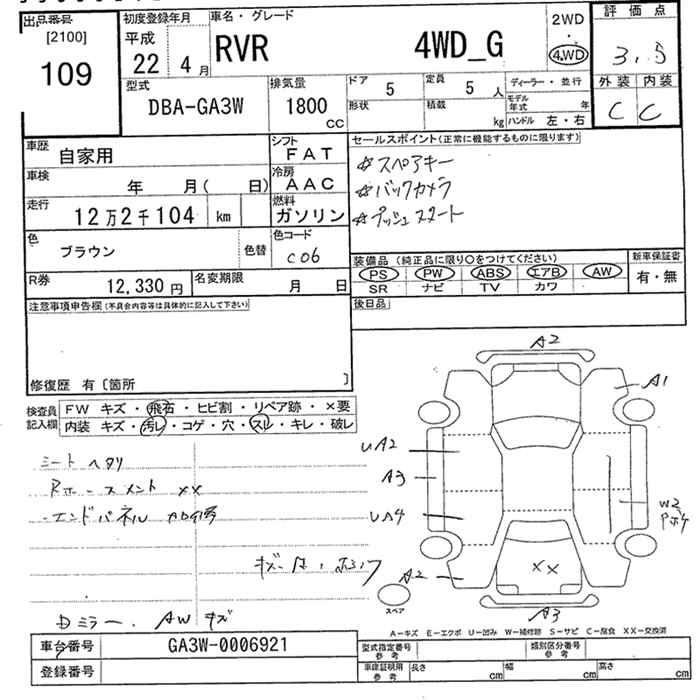 出品番号 初度登録年月 車名・グレード 2WD 評価点
[2100] 平成 ・
109 22 4月 RVR 4WD_G 4WD 3.5
型式 排気量 ドア 5 定員 5人 ディーラー・並行 外装 内装
DBA-GA3W 1800cc 形状 積載 kg モデル年式 年 C C
ハンドル 左・右
車歴 自家用 シフト FAT セールスポイント(正常に機能するものに限ります)
車検 年 月( 日) 冷房 AAC ☆スペアキー
走行 12万2千104 km 燃料 ガソリン ☆バックカメラ
色 ブラウン 色替 色コード C06 ☆プッシュスタート
装備品(純正品に限り〇をつけてください) 新車保証書
R券 12,330円 名変期限 月 日 PS PW ABS エアB AW 有・無
SR ナビ TV カワ
注意事項申告欄(不具合内容等は具体的に記入して下さい) 後日品
修復歴 有〔箇所 〕
検査員記入欄 FW キズ・飛石・ヒビ割・リペア跡・×要
内装 キズ・汚レ・コゲ・穴・スレ・キレ・破レ
A2
A1
シートヘタリ UA2
Rホースメント ×× A3
エンドパネル UA4 W2
A2 ××
A3
スペア
Dミラー、AWキズ
A-キズ E-エクボ U-凹み W-補修跡 S-サビ C-腐食 XX-交換済
車台番号 GA3W-0006921 型式指定番号 参考 類別区分番号 参考
登録番号 車庫証明用 参考 長さ cm 幅 cm 高さ cm